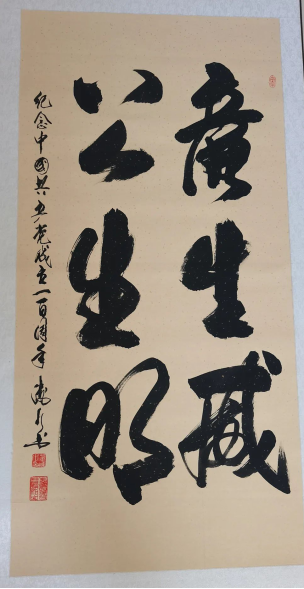 廉生威
公生明
纪念中國共产党成立一百周年